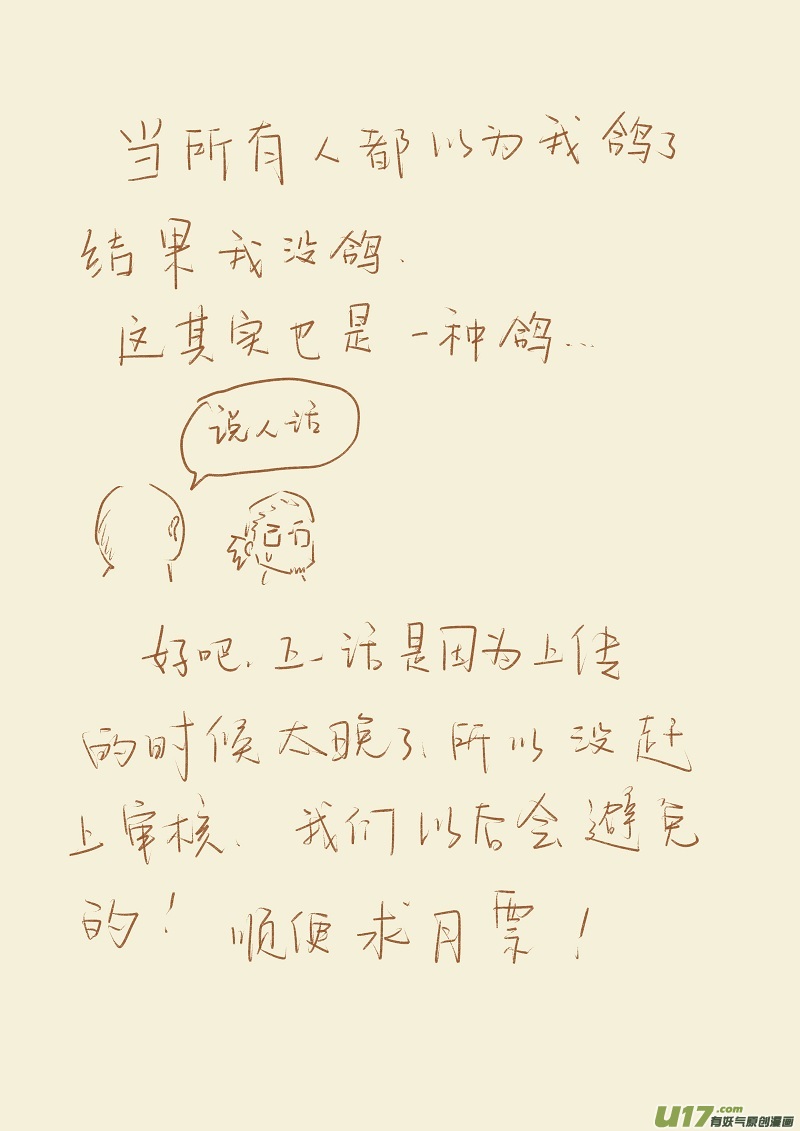 当所有人都以为我鸽了
结果我没鸽.
这其实也是一种鸽...
说人话
好吧、五一话是因为上传
的时候太晚了、所以没赶
上审核、我们以后会避免
的！顺便求月票！
U17.com
有妖气原创漫画